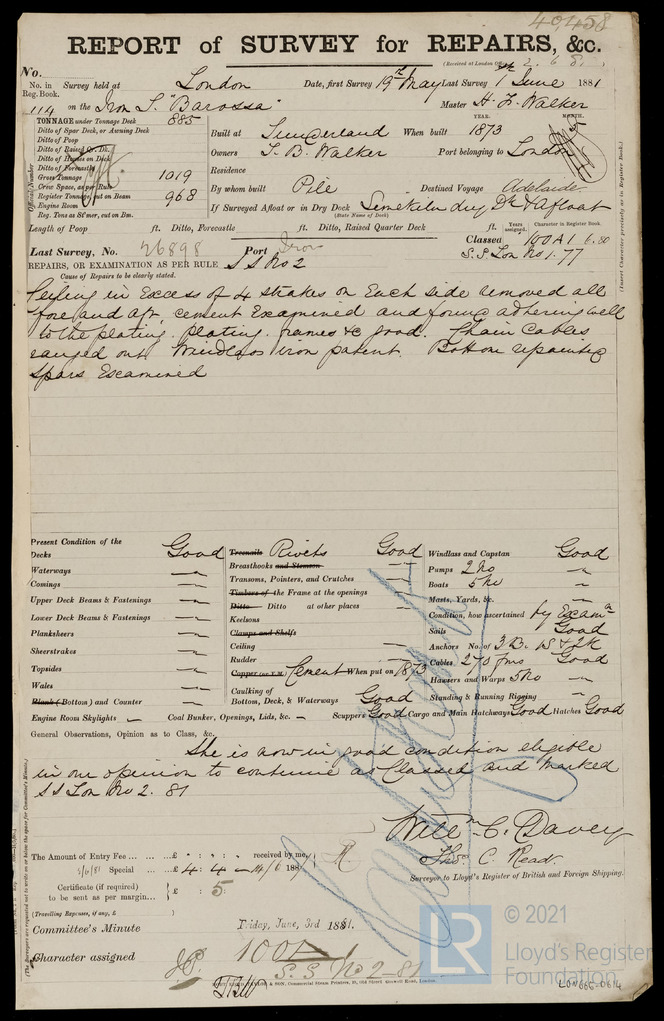 40,458
REPORT of SURVEY for REPAIRS, &c.
(Received at London Office 2. 6. 81
No.
No. in Reg. Book. Survey held at London Date, first Survey 19th May Last Survey 1st June 1881
114 on the Iron S. "Barossa" Master H. F. Walker
TONNAGE under Tonnage Deck 885
Ditto of Spar Deck, or Awning Deck
Ditto of Poop
Ditto of Raised Qr. Dk.
Ditto of Houses on Deck
Ditto of Forecastle
Gross Tonnage 1019
Crew Space, as per Rule
Register Tonnage, cut on Beam 968
Engine Room
Reg. Tons as St'mer, cut on Bm.
Official Number
YEAR. MONTH.
Built at Sunderland When built 1873
Owners T. B. Walker Port belonging to London
Residence
By whom built Pile Destined Voyage Adelaide
If Surveyed Afloat or in Dry Dock Limekiln dry Dk & Afloat
(State Name of Dock)
Length of Poop ft. Ditto, Forecastle ft. Ditto, Raised Quarter Deck ft. Years assigned. Character in Register Book.
Last Survey, No. 26898 Port Iron Classed 100 A 1 6.80
S.S. Lon No 1. 77
REPAIRS, OR EXAMINATION AS PER RULE S S No 2
Cause of Repairs to be clearly stated.
(Insert Character precisely as in Register Book.)
Ceiling in Excess of 4 strakes on Each side removed all
fore and aft, cement Examined and found adhering well
to the plating, plating, frames &c good. Chain Cables
ranged out Windlass iron patent. Bottom repainted
Spars Examined
Present Condition of the
Decks Good
Waterways "
Comings "
Upper Deck Beams & Fastenings "
Lower Deck Beams & Fastenings "
Planksheers "
Sheerstrakes "
Topsides "
Wales "
Plank (Bottom) and Counter "
Engine Room Skylights — Coal Bunker, Openings, Lids, &c. — Scuppers Good Cargo and Main Hatchways Good Hatches Good
Treenails Rivets Good
Breasthooks and Stemson "
Transoms, Pointers, and Crutches "
Timbers of the Frame at the openings
Ditto Ditto at other places "
Keelsons
Clamps and Shelfs
Ceiling "
Rudder "
Copper (or Y.M.) Cement When put on 1873
Caulking of
Bottom, Deck, & Waterways Good
Windlass and Capstan Good
Pumps 2 No "
Boats 5 No "
Masts, Yards, &c. "
Condition, how ascertained by Examn
Sails Good
Anchors No. of 3 B. 1 S & 2 K
Cables 270 fms Good
Hawsers and Warps 5 No "
Standing & Running Rigging "
General Observations, Opinion as to Class, &c.
She is now in good condition eligible
in our opinion to continue as Classed and marked
S S Lon No 2. 81
Willm C. Davey
Thos. C. Read
Surveyor to Lloyd's Register of British and Foreign Shipping.
The Amount of Entry Fee ... £ : : received by me,
Special ... £ 4 : 4 188
Certificate (if required) to be sent as per margin... £ : 5
(Travelling Expenses, if any, £ )
Committee's Minute Friday, June, 3rd 1881.
Character assigned 100 A 1
S. S. No 2 - 81
LR
© 2021
Lloyd's Register
Foundation
LON666-0614